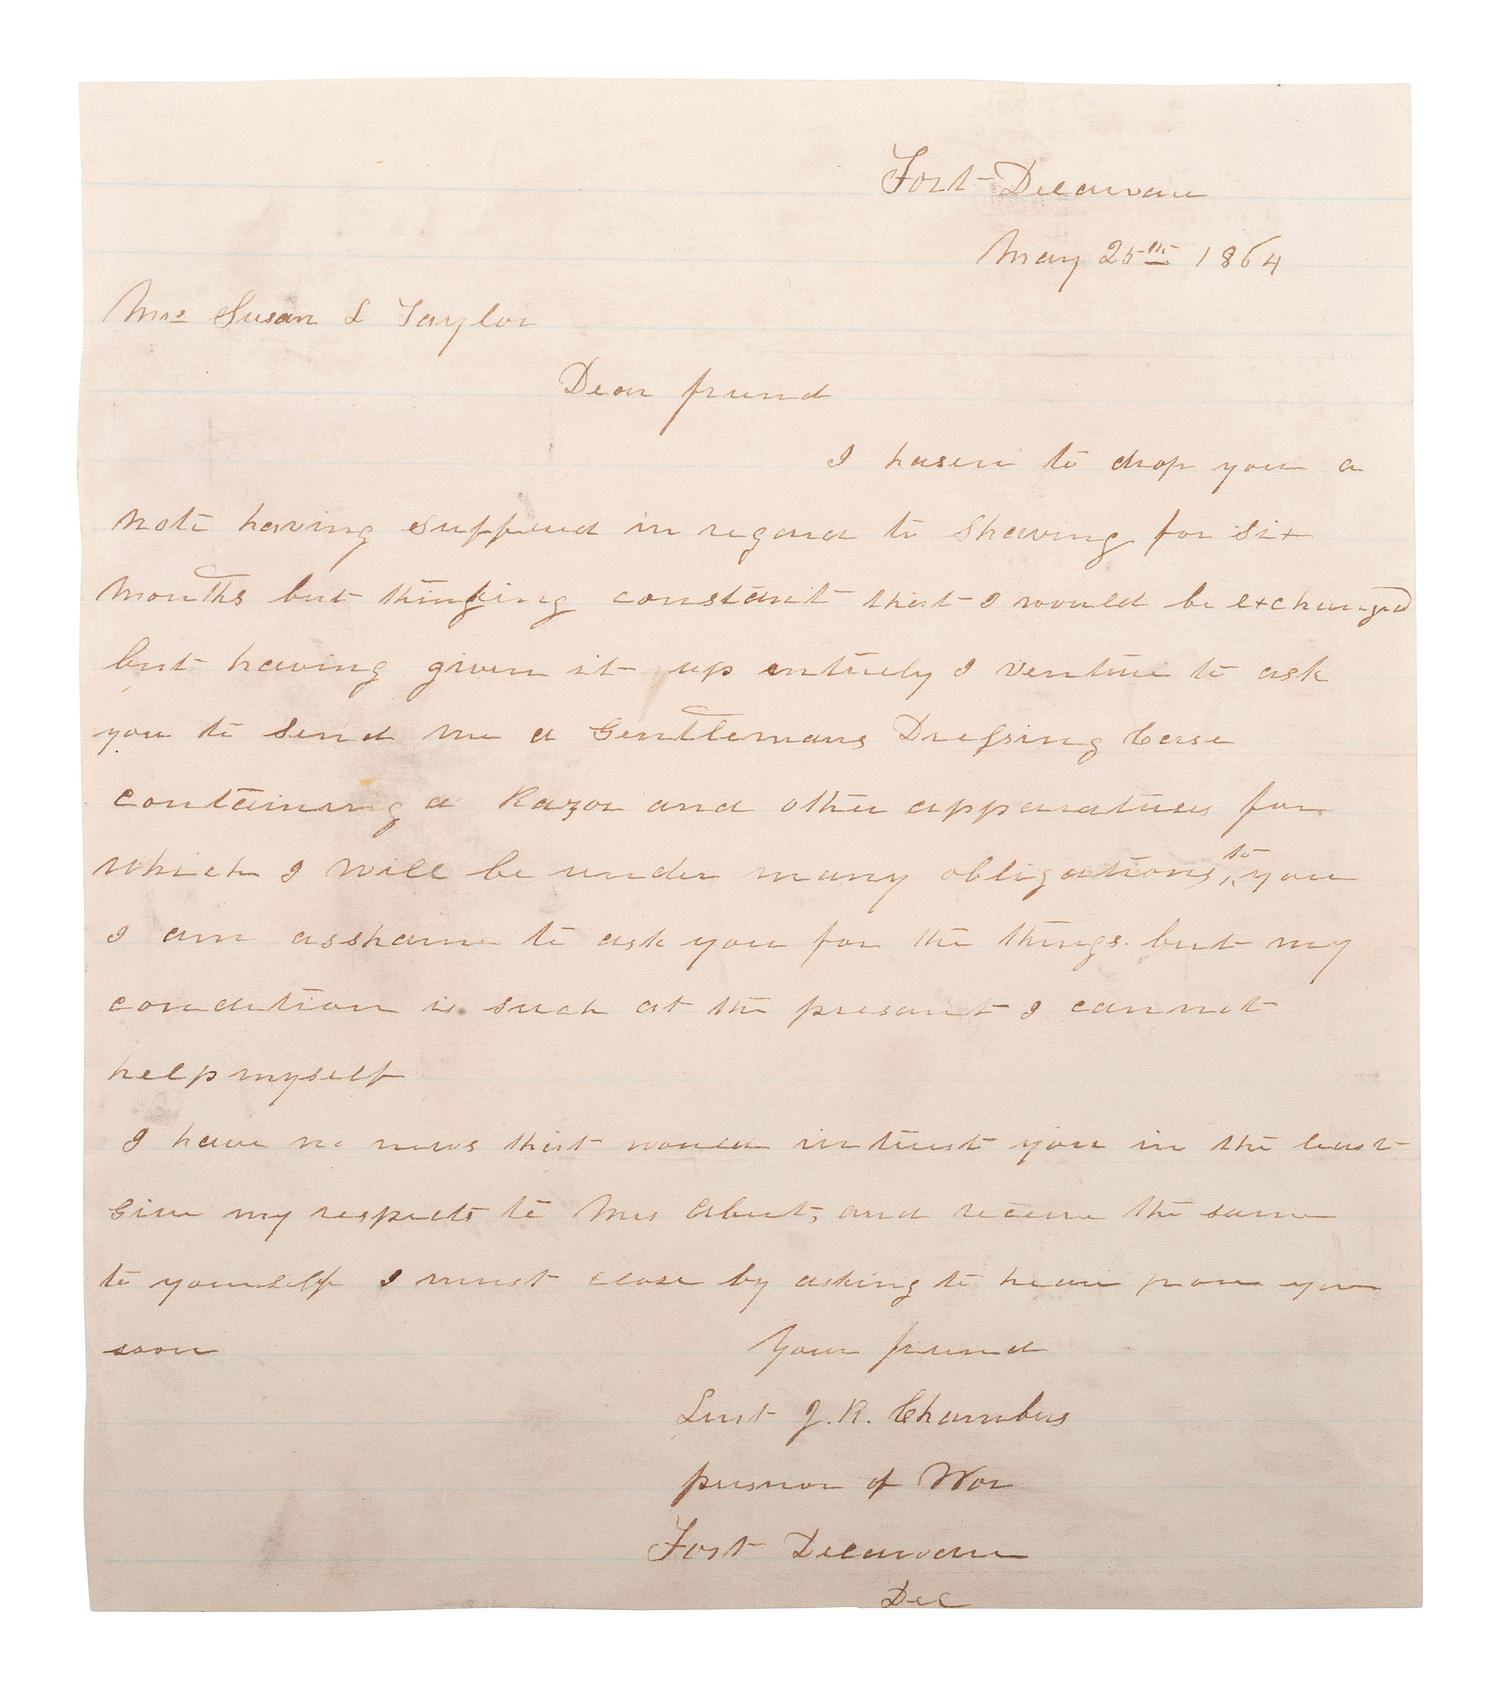 Fort Delaware
May 25th 1864
Mrs Susan L Taylor
Dear friend
I hasen to drop you a
note having suffered in regard to Shaving for six
months but thinking constant that I would be exchanged
but having given it up entirely I venture to ask
you to send me a Gentlemans Dressing Case
containing a Razor and other apparatuses for
which I will be under many obligations, to you
I am asshame to ask you for the things but my
condation is such at the presant I cannot
help myself
I have no news that would interest you in the least
Give my respects to Mrs Albert, and receive the same
to yourself I must close by asking to hear from you
soon Your friend
Lieut J. R. Chambers
prisnor of War
Fort Delaware
Del